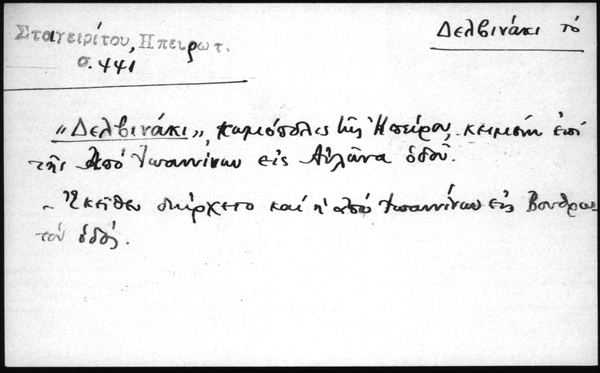 Σταγειρίτου, Ηπειρωτ.
σ. 441
Δελβινάκι τό
"Δελβινάκι", κωμόπολις τῆς Ἠπείρου, κειμένη ἐπί
τῆς ἀπό Ἰωαννίνων εἰς Αὐλῶνα ὁδοῦ.
- Ἐκεῖθεν διήρχετο καί ἡ ἀπό Ἰωαννίνων εἰς Βουθρω-
τόν ὁδός.